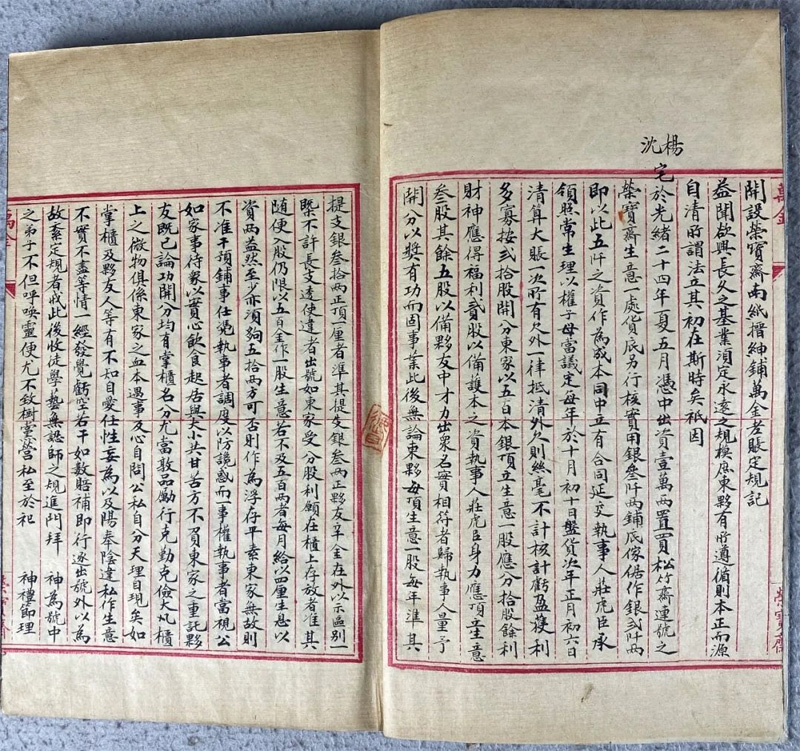 開設榮寶齋南紙搢紳鋪萬金老賬定規記
益聞欲興長久之基業須定永遠之規模庶東夥有所遵循則本正而源
自清所謂法立其初在斯時矣祇因
楊
沈
宅於光緒二十四年夏五月憑中出資壹萬兩置買松竹齋連號之
榮寶齋生意一處貨底另行核實用銀叁阡兩鋪底傢俱作銀弍阡兩
即以此五阡之資作為成本同中立有合同延友執事人莊虎臣承
領照常生理以權子母當議定每年於十月初十日盤貨次年正月初六日
清算大賬一次所有欠外一律抵清外欠則絲毫不計核計虧盈獲利
多寡按弍拾股開分東家以五百本銀頂立生意一股應分拾股餘利
財神應得福利貳股以備護本之資執事人莊虎臣身力應頂生意
叁股其餘五股以備夥友中才力出眾名實相符者歸執事人量予
開分以獎有功而固事業此後無論東夥每頂生意一股每年準其
提支銀叁拾兩正頂一厘者準其提支銀叁兩正夥友辛金在外以示區别一
槩不許長支透使違者出號如東家受入分股利願在櫃上存放者准其
隨便入股仍限以五百金作一股生意若不及五百兩者每月給以四厘生息以
資兩益然至少亦須夠五拾兩方可否則作為浮存平素東家無故則
不准干預鋪事任凴執事者調度以防譏惑而一事權執事者當視公
如家事待衆以實心飲食起居與大小共甘苦方不負東家之重託夥
友既已論功開分均有掌櫃名分尤當敦品勵行克勤克儉大凡櫃
上之微物俱係東家之血本遇事反心自問公私自分天理自現矣如
掌櫃及夥友人等有不知自愛任性妄為以及陽奉陰違私作生意
不實不盡等情一經發覺虧空若干如數賠補即行逐出號外以為
故紊定規者戒此後收徒學藝無認師之規進門拜 神為號中
之弟子不但呼喚靈便尤不致樹黨營私至於祀 神禮節理
榮寶齋